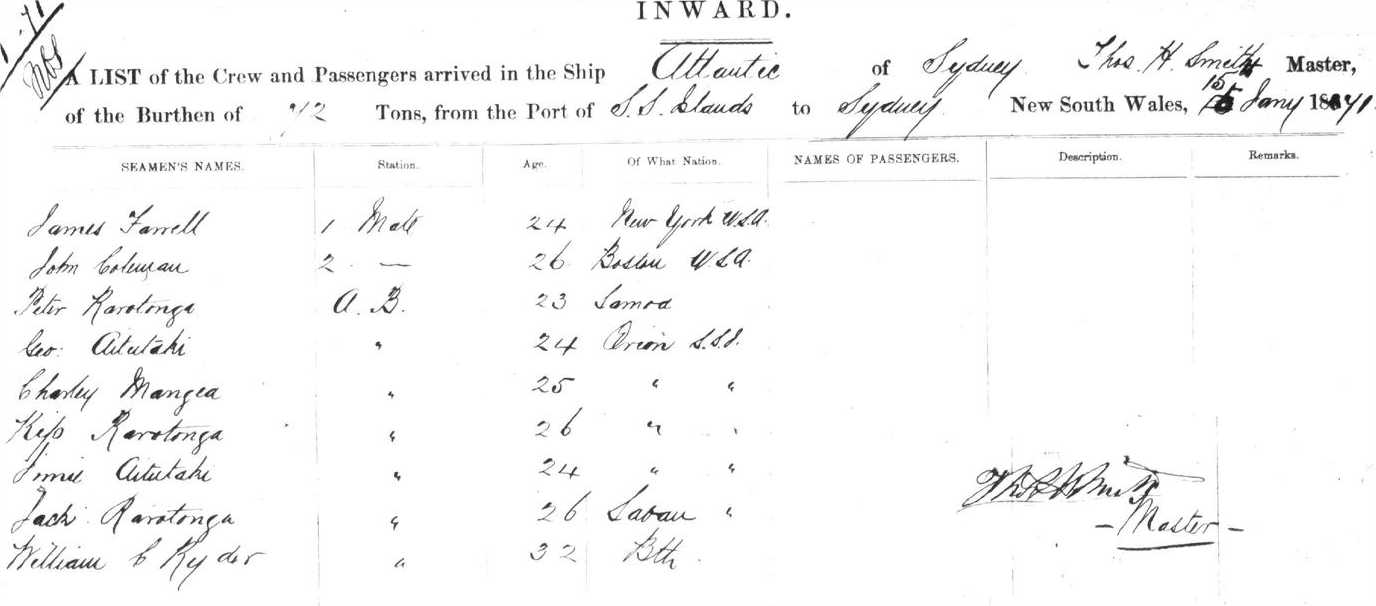 INWARD.
A LIST of the Crew and Passengers arrived in the Ship Atlantic of Sydney Thos. H. Smith Master,
of the Burthen of Tons, from the Port of S. S. Islands to Sydney New South Wales, 15 Jany 1871
SEAMEN'S NAMES. Station. Age. Of What Nation. NAMES OF PASSENGERS. Description. Remarks.
James Farrell 1 Mate 24 New York U.S.A.
John Coleman 2 — 26 Boston U.S.A.
Peter Rarotonga A. B. 23 Samoa
Geo. Aitutaki " 24 S.S.I.
Charley Mangea " 25 " "
Rarotonga " 26 " "
Aitutaki " 24 " "
Jack Rarotonga " 26 "
William C Ryder " 32
Master